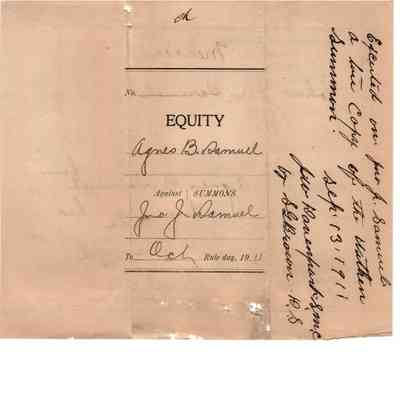 ch
No.
EQUITY
Agnes B. Samuel
Against SUMMONS
Jno J. Samuel
To Och Rule day, 1911
Executed on Jno J. Samuel
a true Copy of the within
Summon.
Sep. 13. 1911
Davenport S.M.C.
by D.S.